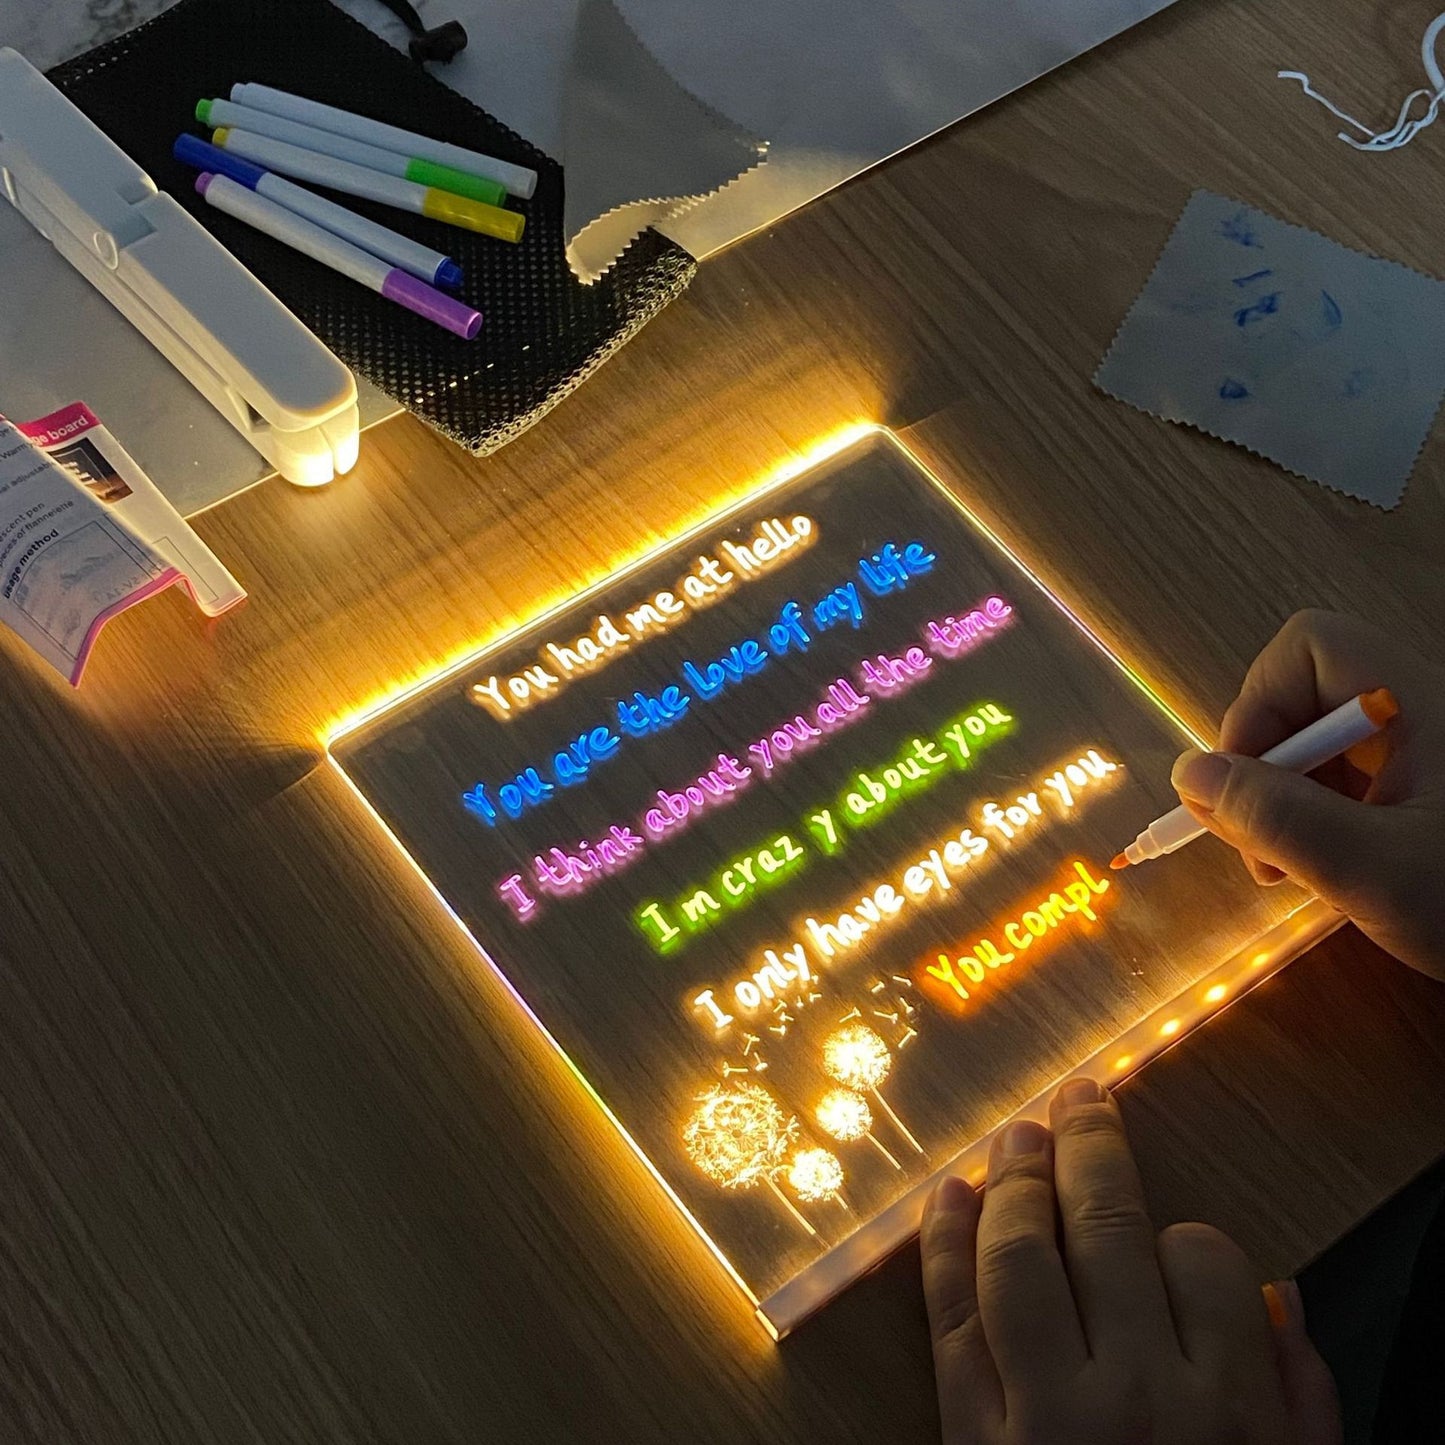 You had me at hello
You are the Love of my life
I think about you all the time
I m craz y about you
I only have eyes for you
You compl
ge board
Warm
al adjustab
escent pen
pieces of flannelette
usage method